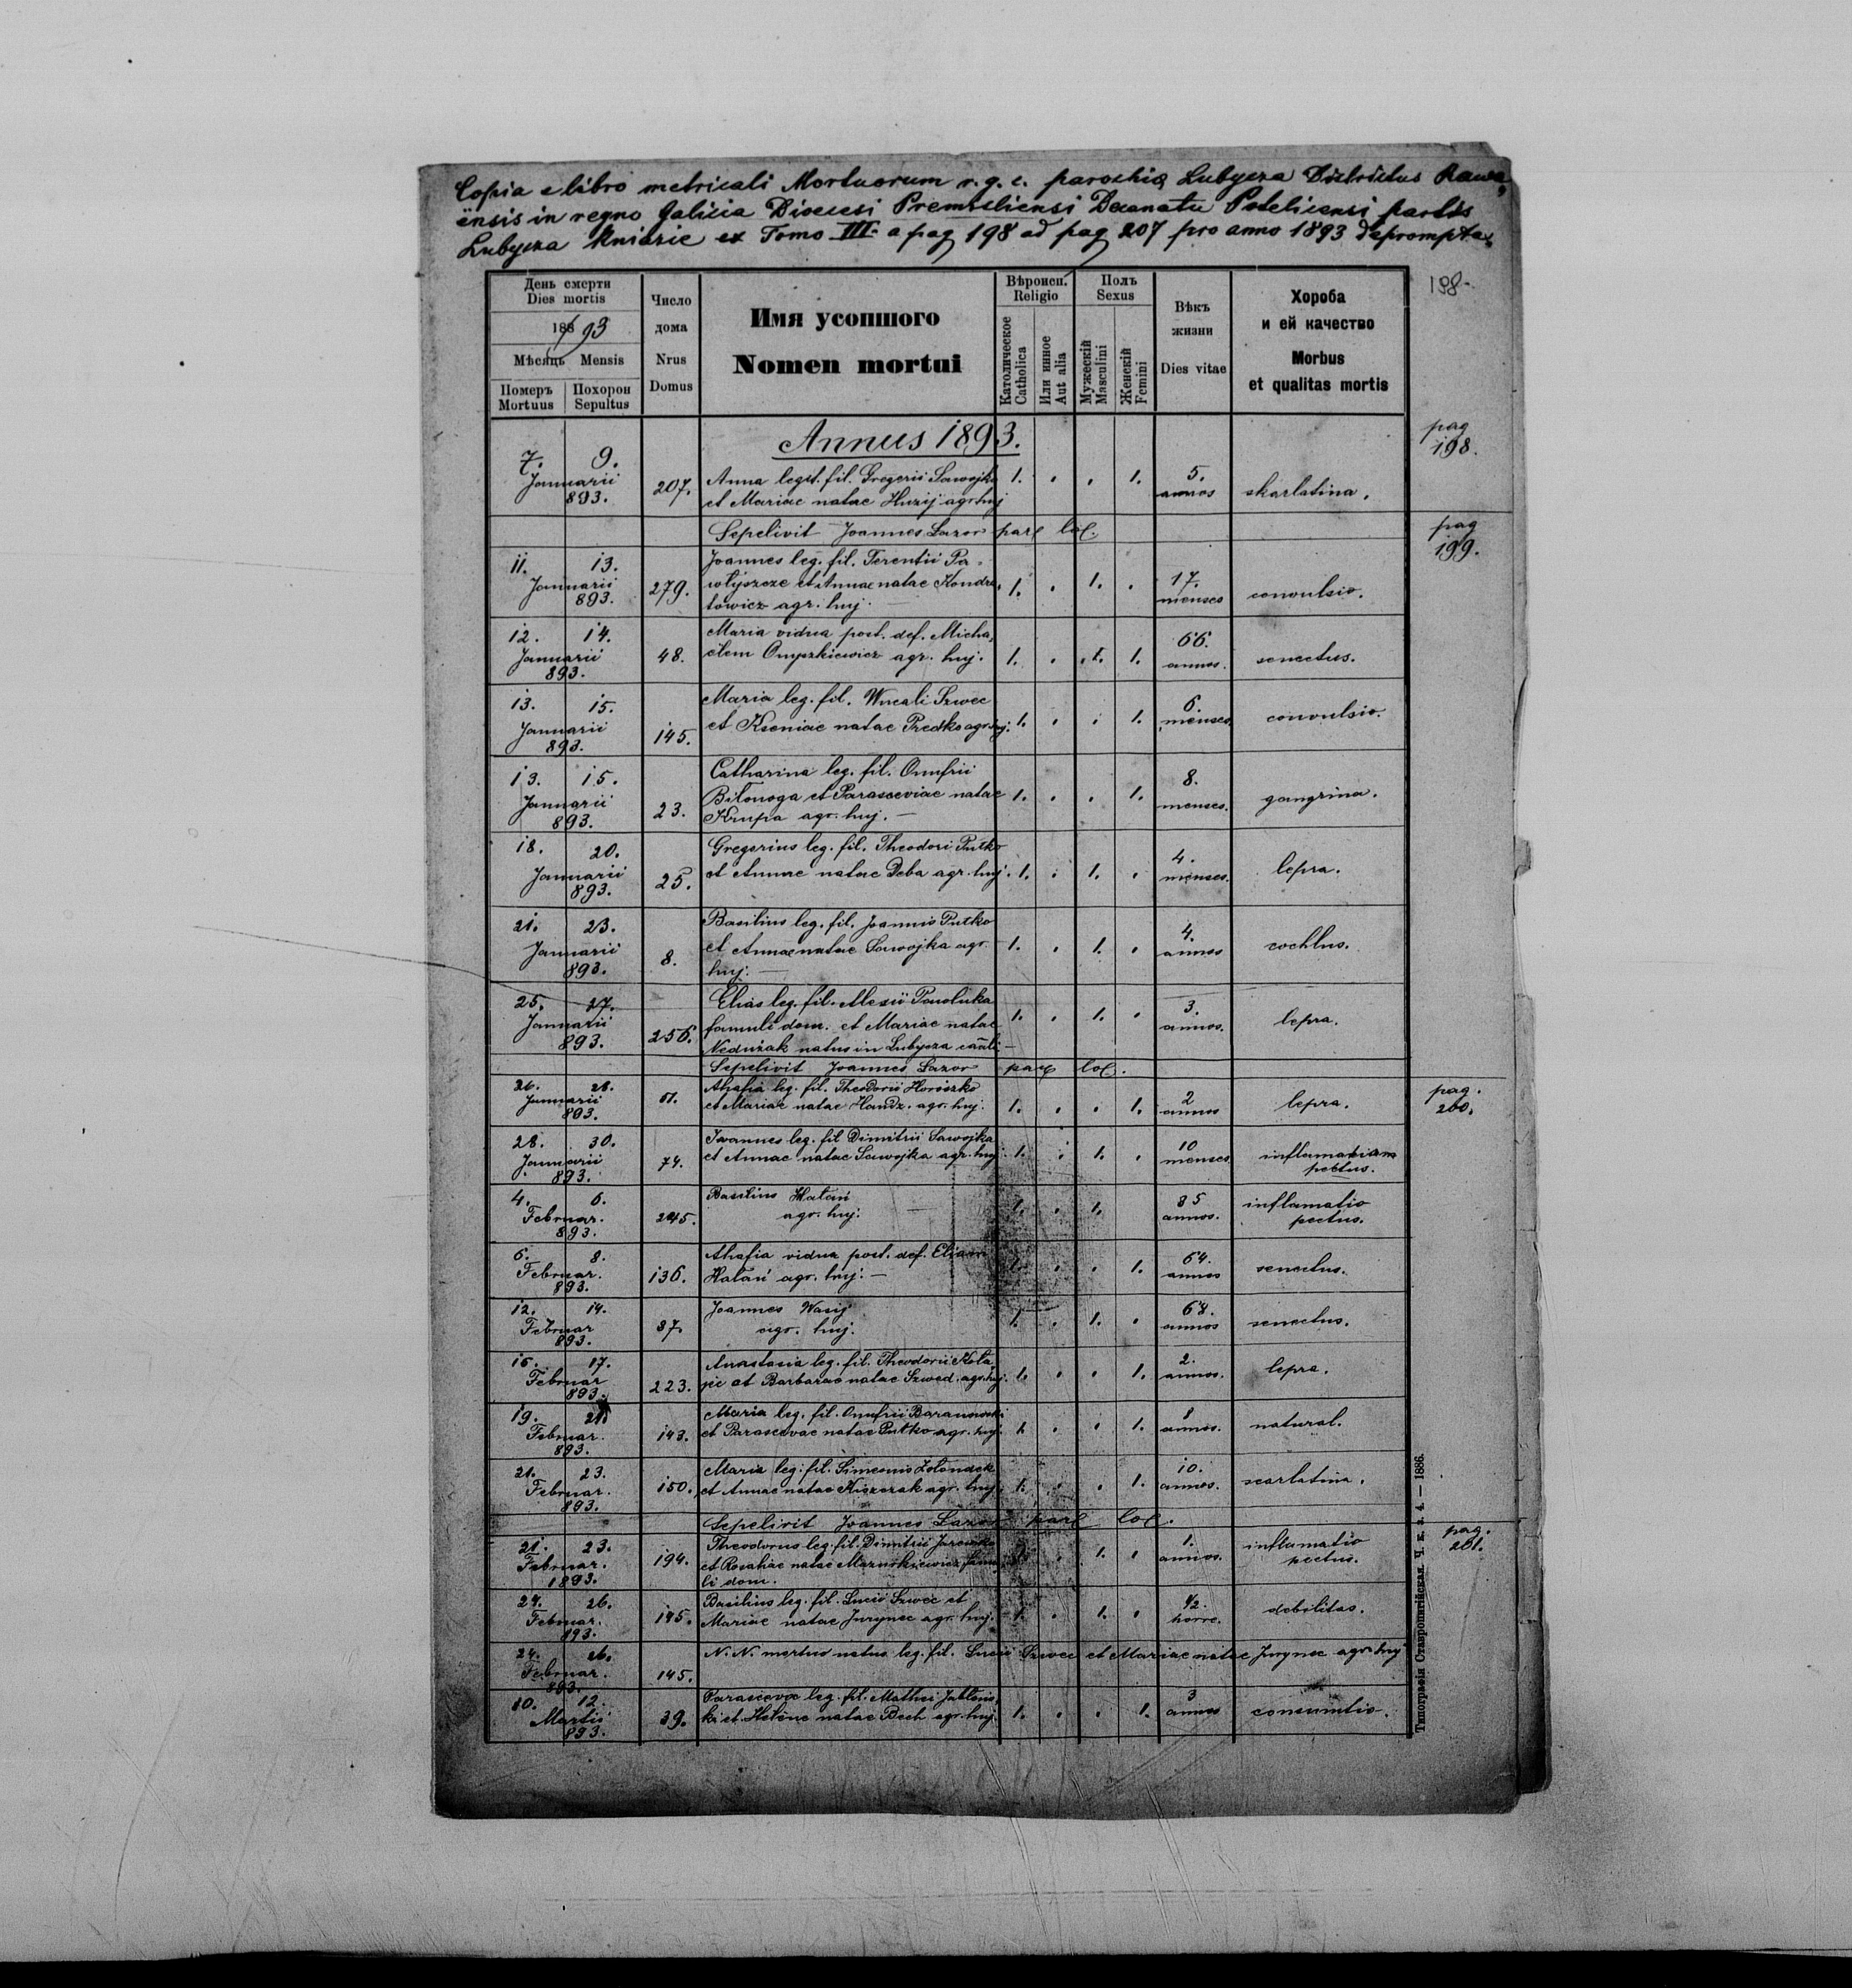 Copia e libro metricali Mortuorum r. g. c. parochia Lubycza Districtus Rawa,
ënsis in regno Galicia Diœcesi Premisliensi Decanatu Potelicensi partis
Lubycza Kniazie ex Tomo III. a pag 198 ad pag 207 pro anno 1893 deprompta.
198.
День смерти
Dies mortis
1893
Мѣсяць Mensis
Померъ Mortuus
Похорон Sepultus
Число дома
Nrus Domus
Имя усопшого
Nomen mortui
Вѣроисп. Religio
Католическое Catholica
Или инное Aut alia
Полъ Sexus
Мужескій Masculini
Женскій Femini
Вѣкъ жизни
Dies vitae
Хороба и ей качество
Morbus et qualitas mortis
Annus 1893.
pag 198.
7. 9. Januarii 893. 207. Anna legit. fil. Gregorii Sawojka
et Mariae natae Huzij agr. huj 1. . . 1. 5. annos skarlatina.
Sepelivit Joannes Lazor par loc.
pag 199.
11. 13. Januarii 893. 279. Joannes leg. fil. Terentii Pa-
wlyszcze et Annae natae Kondra
towicz agr. huj. 1. . 1. . 17. menses convulsio.
12. 14. Januarii 893. 48. Maria vidua post. def. Micha,
ëlem Onyszkiewicz agr. huj. 1. . 1. 66. annos. senectus.
13. 15. Januarii 893. 145. Maria leg. fil. Szwec
et Kseniae natae Predko agr. huj. 1. . . 1. 6. menses. convulsio.
13. 15. Januarii 893. 23. Catharina leg. fil. Onufrii
Bilonoga et Parasceviae natae
Krupa agr. huj. 1. . . 1. 8. menses. gangrina.
18. 20. Januarii 893. 25. Gregorius leg. fil. Theodori Putko
et Annae natae Deba agr. huj. 1. . 1. . 4. menses. lepra.
21. 23. Januarii 893. 8. Basilius leg. fil. Joannis Putko
et Annae natae Sawojka agr.
huj. 1. . 1. . 4. annos cochlus.
25. 27. Januarii 893. 256. Elias leg. fil. Alexii
famuli dom. et Mariae natae
Nedużak natus in Lubycza 1. . 1. . 3. annos. lepra.
Sepelivit Joannes Lazor par loc.
pag. 200.
26. 28. Januarii 893. 61. Ahafia leg. fil. Theodorii Horoszko
et Mariae natae Handz. agr. huj. 1. . . 1. 2 annos lepra.
28. 30. Januarii 893. 74. Joannes leg. fil Dimitrii Sawojka
et Annae natae Sawojka agr. huj. 1. . 1. . 10 menses pectus.
4. 6. Februar. 893. 245. Basilius Hałań
agr. huj. 1. . 1. 85 annos. inflamatio
pectus.
6. 8. Februar. 893. 136. Ahafia vidua post. def. Eliam
Hałań agr. huj. 1. . . 1. 64. annos senectus.
12. 14. Februar 893. 37. Joannes Wasij
agr. huj. 1. . 1. . 68. annos senectus.
15. 17. Februar 893. 223. Anastasia leg. fil. Theodorii Kola
jic et Barbarae natae Szwed. agr. huj. 1. . . 1. 2. annos. lepra.
19. 21. Februar. 893. 143. Maria leg. fil. Onufrii Baranowski
et Parascevae natae Putko agr. huj. 1. . . 1. annos. natural.
21. 23. Februar. 893. 150. Maria leg. fil. Simeonis Zołondek
et Annae natae agr. huj. 1. . . 1. 10. annos. scarlatina.
Sepelivit Joannes Lazor par loc.
pag. 201.
21. 23. Februar. 1893. 194. Theodorus leg. fil. Dimitrii
et Rosaliae natae Mazurkiewicz famu
li dom. . 1. . 1. annos. inflamatio
pectus.
24. 26. Februar. 893. 145. Basilius leg. fil. Lucii Szwec et
Mariae natae Jurynec agr. huj. 1. . 1. . 1/2. horre. debilitas.
24. 26. Februar. 893. 145. N. N. mortuo natus leg. fil. Lucii Szwec et Mariae natae Jurynec agr. huj
10. 12. Martii 893. 39. Parasceva leg. fil. Mathei Jabłońs,
ki et Helene natae Bech agr. huj. 1. . . 1. 3 annos consumtio.
Типографія Ставропигійская. Ч. к. з. 4. — 1886.